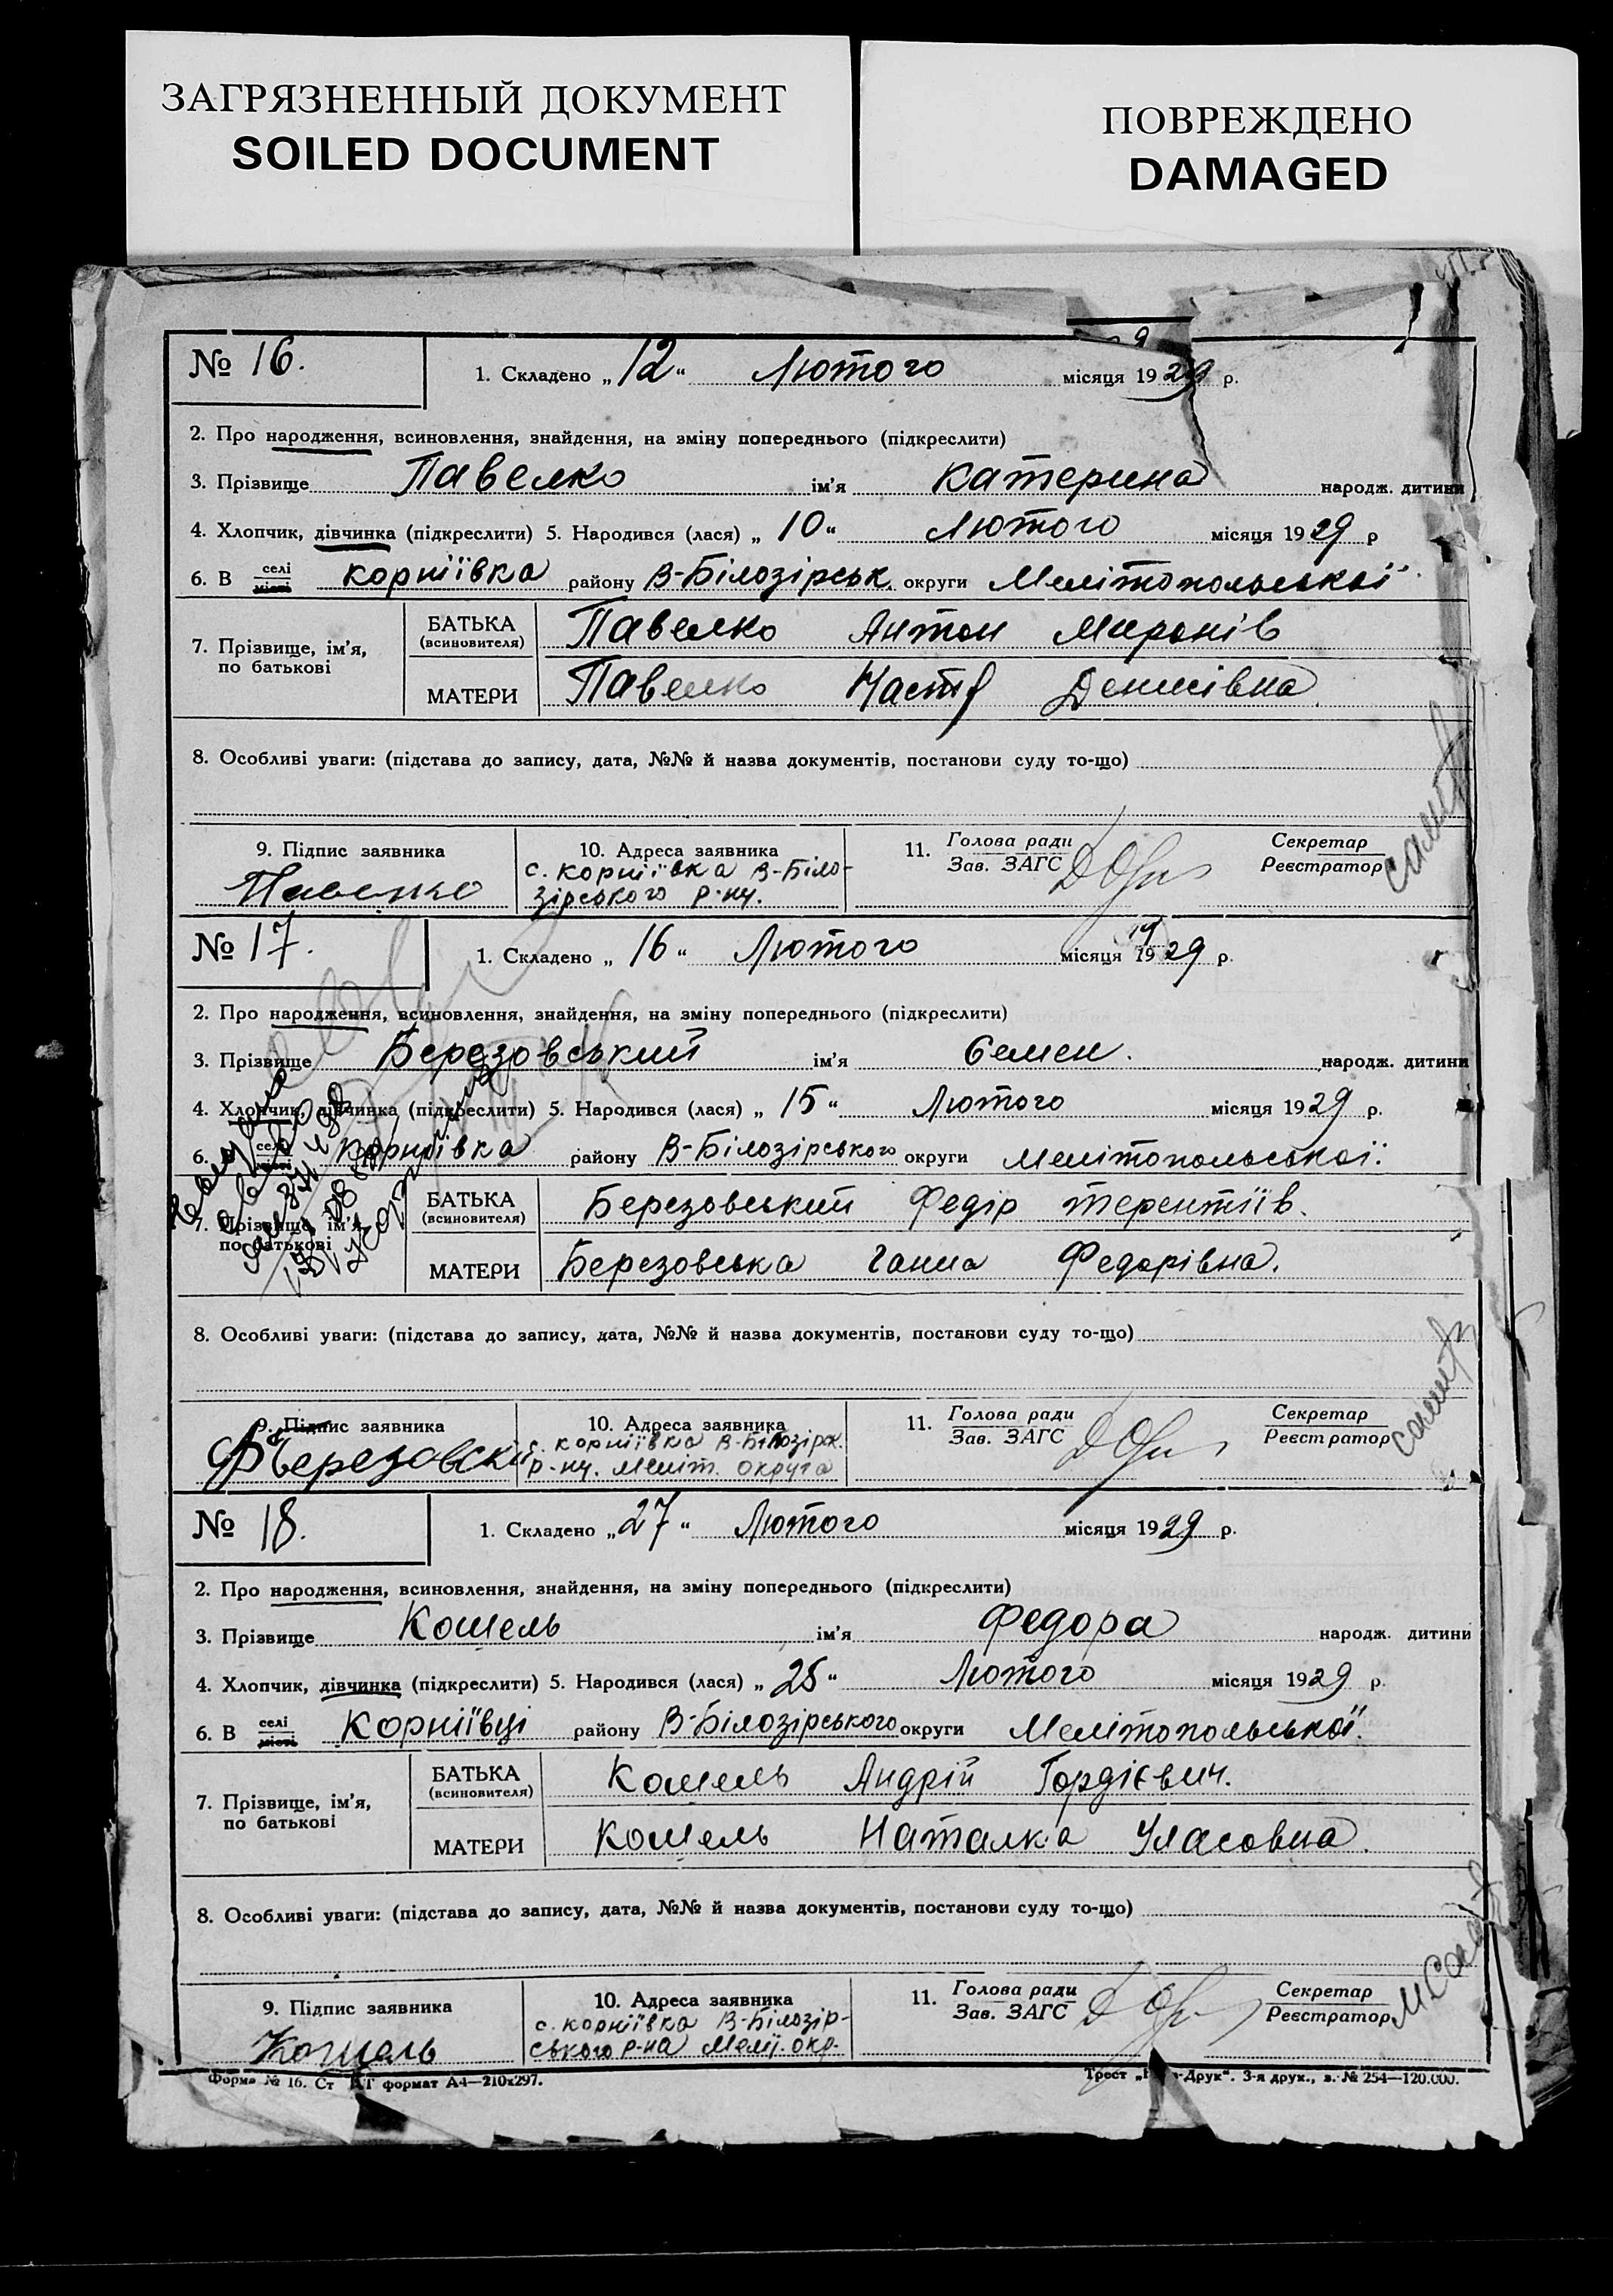 ЗАГРЯЗНЕННЫЙ ДОКУМЕНТ
SOILED DOCUMENT
ПОВРЕЖДЕНО
DAMAGED
№ 16.
1. Складено „12“ Лютого місяця 1929 р.
2. Про народження, всиновлення, знайдення, на зміну попереднього (підкреслити)
3. Прізвище Павелко ім'я Катерина народж. дитини
4. Хлопчик, дівчинка (підкреслити) 5. Народився (лася) „10“ Лютого місяця 1929 р
6. В селі місті Корніївка району В-Білозірськ. округи Мелітопольської
7. Прізвище, ім'я, по батькові
БАТЬКА (всиновителя) Павелко Антон Миронів
МАТЕРИ Павелко Настя Денисівна
8. Особливі уваги: (підстава до запису, дата, №№ й назва документів, постанови суду то-що)
9. Підпис заявника
Павелко
10. Адреса заявника
с. Корніївка В-Біло-
зірського р-ну.
11. Голова ради
Зав. ЗАГС
Секретар
Реєстратор
№ 17.
1. Складено „16“ Лютого місяця 1929 р.
2. Про народження, всиновлення, знайдення, на зміну попереднього (підкреслити)
3. Прізвище Березовський ім'я Семен. народж. дитини
4. Хлопчик, дівчинка (підкреслити) 5. Народився (лася) „15“ Лютого місяця 1929 р.
6. В селі місті Корніївка району В-Білозірського округи Мелітопольської.
7. Прізвище, ім'я, по батькові
БАТЬКА (всиновителя) Березовський Федір Терентіїв.
МАТЕРИ Березовська Ганна Федорівна.
8. Особливі уваги: (підстава до запису, дата, №№ й назва документів, постанови суду то-що)
9. Підпис заявника
10. Адреса заявника
с. Корніївка В-Білозірск.
р-ну. Меліт. округа
11. Голова ради
Зав. ЗАГС
Секретар
Реєстратор
№ 18.
1. Складено „27“ Лютого місяця 1929 р.
2. Про народження, всиновлення, знайдення, на зміну попереднього (підкреслити)
3. Прізвище Кошель ім'я Федора народж. дитини
4. Хлопчик, дівчинка (підкреслити) 5. Народився (лася) „25“ Лютого місяця 1929 р.
6. В селі місті Корніївці району В-Білозірського округи Мелітопольської.
7. Прізвище, ім'я, по батькові
БАТЬКА (всиновителя) Кошель Андрій Гордієвич.
МАТЕРИ Кошель Наталка Уласовна.
8. Особливі уваги: (підстава до запису, дата, №№ й назва документів, постанови суду то-що)
9. Підпис заявника
Кошель
10. Адреса заявника
с. Корніївка В-Білозір-
ського р-на Мелі. окр.
11. Голова ради
Зав. ЗАГС
Секретар
Реєстратор
Форма № 16. Ст формат А4—210х297.
Трест Друк“. 3-я друк., з. № 254—120.000.